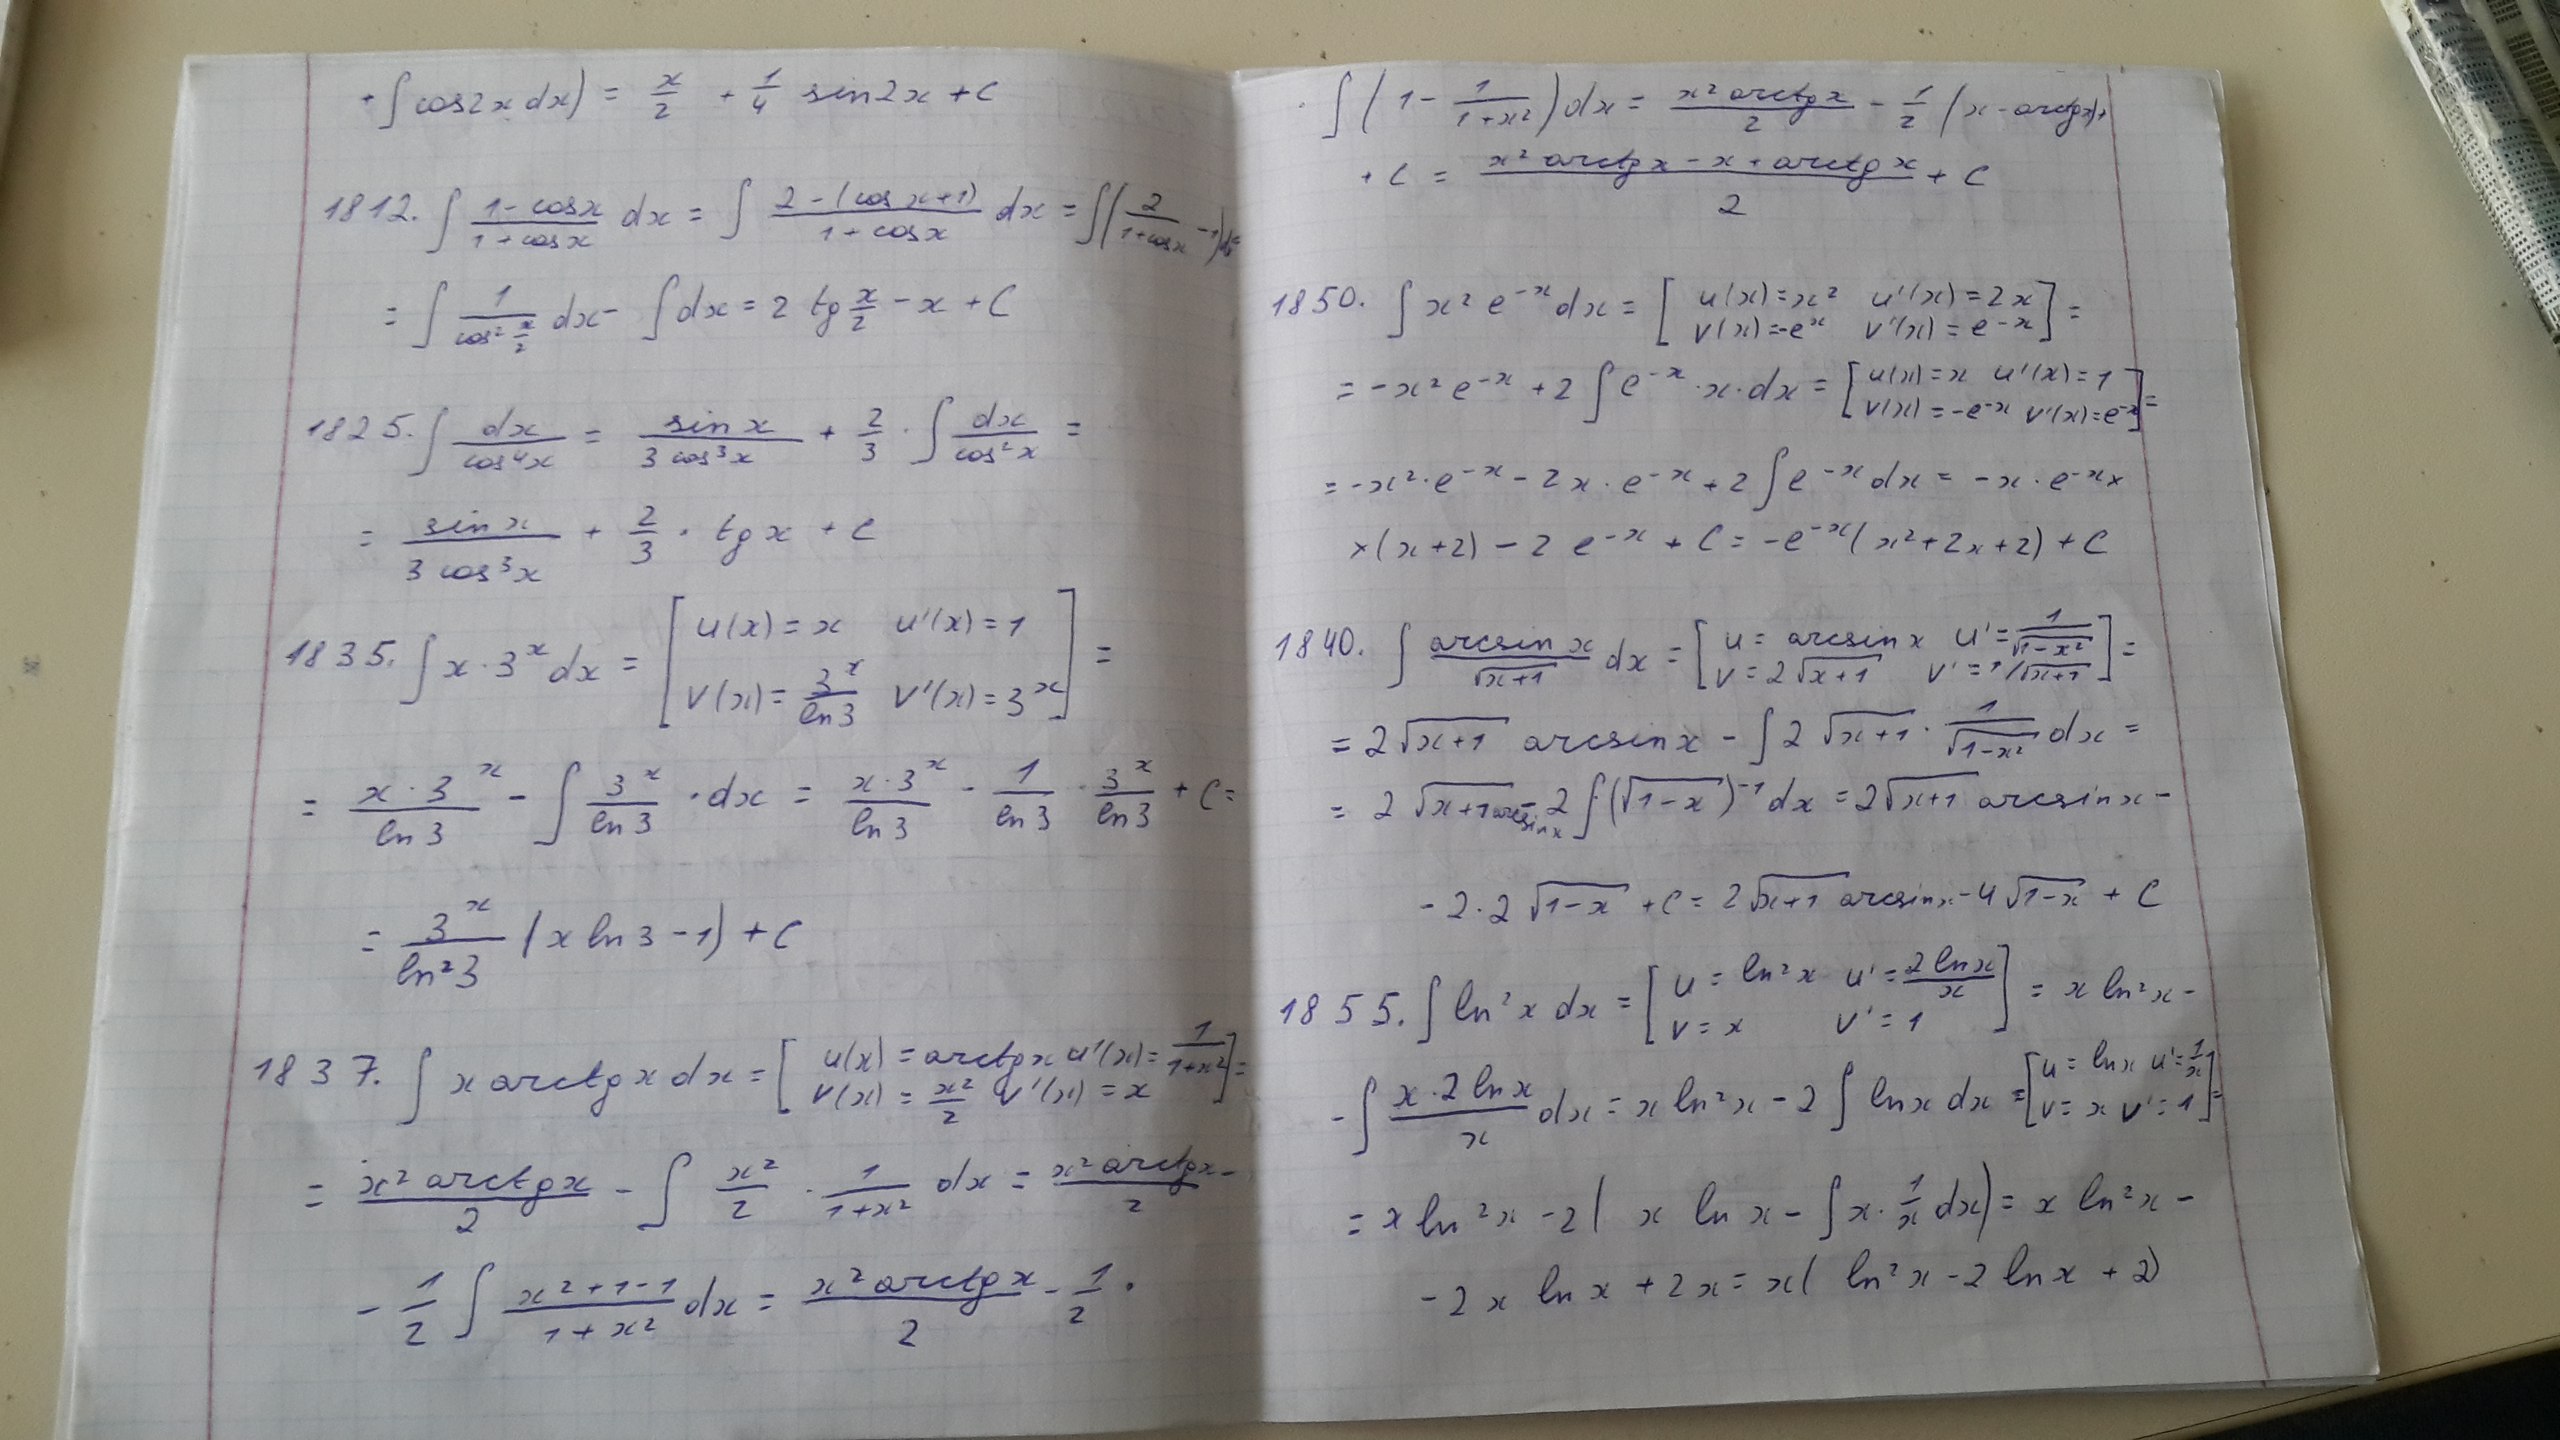 + ∫ cos2x dx) = x/2 + 1/4 sin2x + C
1812. ∫ (1-cosx)/(1+cosx) dx = ∫ (2-(cosx+1))/(1+cosx) dx = ∫(2/(1+cosx) -1)dx=
= ∫ 1/(cos² x/2) dx - ∫ dx = 2 tg x/2 - x + C
1825. ∫ dx/(cos⁴x) = sinx/(3 cos³x) + 2/3 · ∫ dx/(cos²x) =
= sinx/(3 cos³x) + 2/3 · tgx + C
1835. ∫ x·3ˣ dx = [ u(x) = x u'(x) = 1
v(x) = 3ˣ/ln3 v'(x) = 3ˣ ] =
= x·3ˣ/ln3 - ∫ 3ˣ/ln3 · dx = x·3ˣ/ln3 - 1/ln3 · 3ˣ/ln3 + C =
= 3ˣ/ln²3 (x ln3 - 1) + C
1837. ∫ x arctgx dx = [ u(x) = arctgx u'(x) = 1/(1+x²)
v(x) = x²/2 v'(x) = x ] =
= x² arctgx/2 - ∫ x²/2 · 1/(1+x²) dx = x² arctgx/2 -
- 1/2 ∫ (x²+1-1)/(1+x²) dx = x² arctgx/2 - 1/2 ·
· ∫ (1 - 1/(1+x²)) dx = x² arctgx/2 - 1/2 (x - arctgx)+
+ C = (x² arctgx - x + arctgx)/2 + C
1850. ∫ x² e⁻ˣ dx = [ u(x) = x² u'(x) = 2x
v(x) = -eˣ v'(x) = e⁻ˣ ] =
= -x² e⁻ˣ + 2 ∫ e⁻ˣ · x · dx = [ u(x) = x u'(x) = 1
v(x) = -e⁻ˣ v'(x) = e⁻ˣ ] =
= -x²·e⁻ˣ - 2x·e⁻ˣ + 2 ∫ e⁻ˣ dx = -x·e⁻ˣ ×
× (x+2) - 2 e⁻ˣ + C = -e⁻ˣ(x²+2x+2) + C
1840. ∫ arcsinx/√(x+1) dx = [ u = arcsinx u' = 1/√(1-x²)
v = 2√(x+1) v' = 1/√(x+1) ] =
= 2√(x+1) arcsinx - ∫ 2 √(x+1) · 1/√(1-x²) dx =
= 2 √(x+1) arcsinx - 2 ∫ (√(1-x))⁻¹ dx = 2√(x+1) arcsinx -
- 2·2 √(1-x) + C = 2√(x+1) arcsinx - 4 √(1-x) + C
1855. ∫ ln²x dx = [ u = ln²x u' = 2lnx/x
v = x v' = 1 ] = x ln²x -
- ∫ (x·2 lnx)/x dx = x ln²x - 2 ∫ lnx dx = [ u = lnx u' = 1/x
v = x v' = 1 ] =
= x ln²x - 2( x lnx - ∫ x · 1/x dx) = x ln²x -
- 2x lnx + 2x = x( ln²x - 2 lnx + 2)